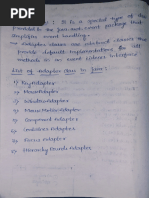 : It is a special type of class
provided by the java.awt.event package used
event handling.
⇒ Adapter classes are abstract classes that
provide default implementations for all
methods in an event listener interface
List of adapter class in java :-
1) KeyAdapter
2) MouseAdapter
3) WindowAdapter
4) MouseMotionAdapter
5) Component Adapter
6) Container Adapter
7) Focus Adapter
8) Hierarchy Bounds Adapter